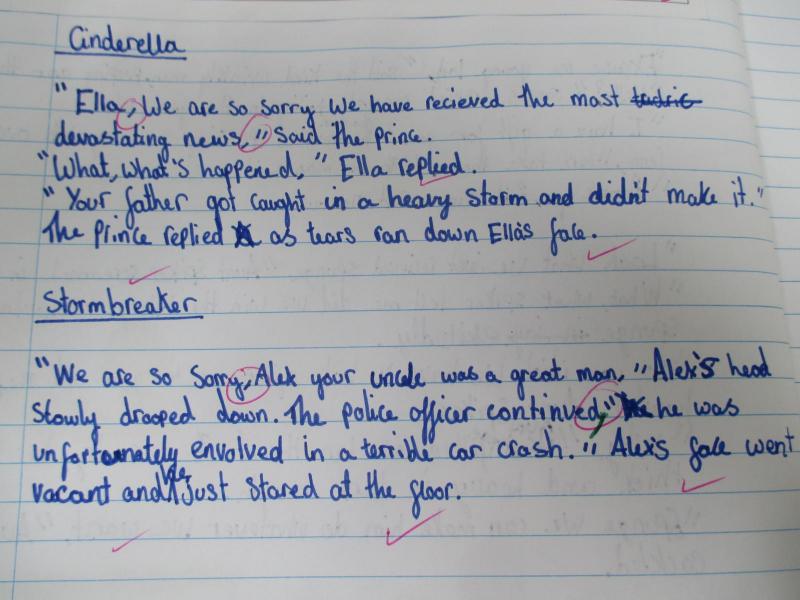 Cinderella
"Ella, We are so sorry we have recieved the most
devastating news," said the prince.
"What, what's happened," Ella replied.
"Your father got caught in a heavy storm and didn't make it."
The Prince replied as tears ran down Ella's face.
Stormbreaker
"We are so Sorry, Alex your uncle was a great man," Alex's head
slowly drooped down. The police officer continued," he was
unfortunately envolved in a terrible car crash." Alex's face went
vacant and he Just stared at the floor.